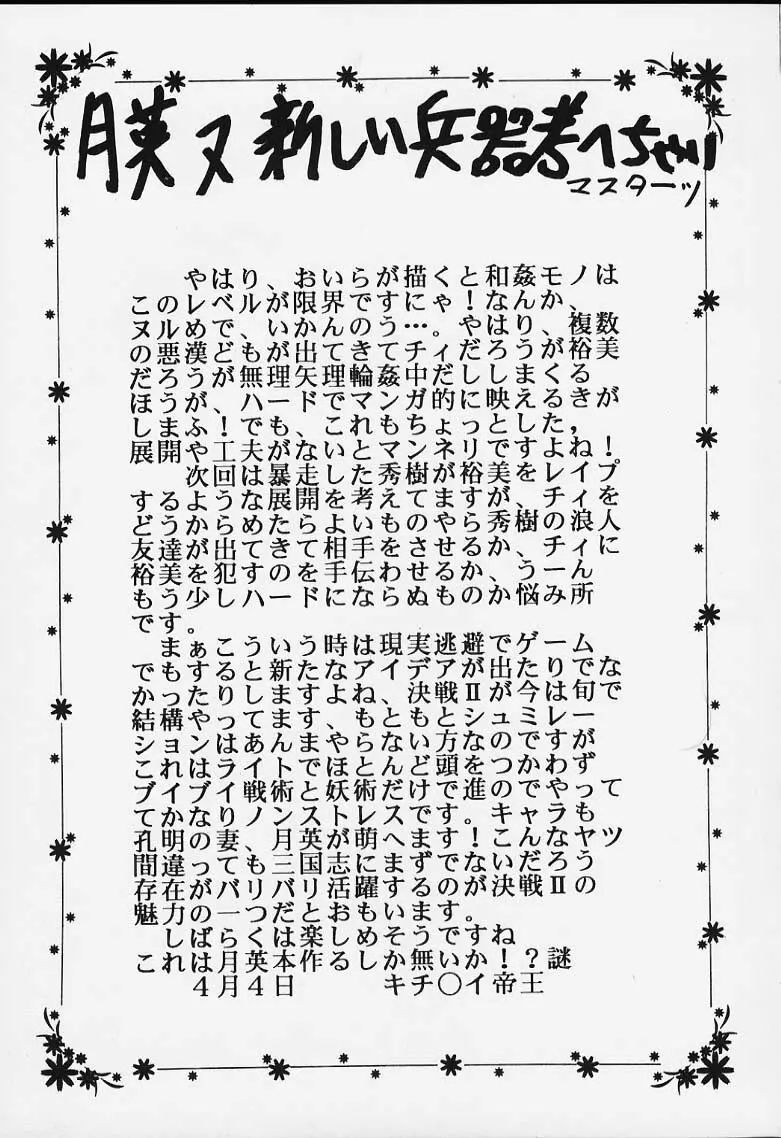 月英ヌ新しい兵器考へちゃい
マスターツ
やはり、おいらが描くと和姦モノは
このレベルが限界ですにゃ！なんか、
ヌルめで、いかんのう…。やはり、複数
の悪漢どもが出てきてチィだろうが裕美
だろうが無理矢理輪姦中だしまくる
ほうが、ハードでマンガ的に映えるきが
しまふ！でも、これもちょっとした，
展開や工夫がないとマンネリですよね！
次回は暴走した秀樹が裕美をレイプ
するような展開を考えてますが、チィを
どうからめたらよいものやら秀樹の浪人
友達が出てきて相手をさせるか、チィに
裕美を犯すのを手伝わせるか、うーん
もう少しハードにならぬものか悩み所
です。
まぁこういう時は現実逃避でゲーム
でもすると新たなアイデアが出たりで な
かったりしますよね、決戦Ⅱが今は旬で
結構やってます、もともとシュミレー
ションはあんまやらない方なのですが
これはライトでほとんど頭をつかわず
ブイブイ戦術と妖術だけで進のでやって
てかなりノンストレスです。キャラも
孔明の妻、月英が萌へます！こんなヤツ
間違っても三国志にまずでないだろう
存在がバリバリ活躍するのが決戦Ⅱの
魅力の一つだとおもいます。
しばらくは楽しめそうですね
これは月英本作るしか無いか！？謎
4月4日 キチ〇イ帝王